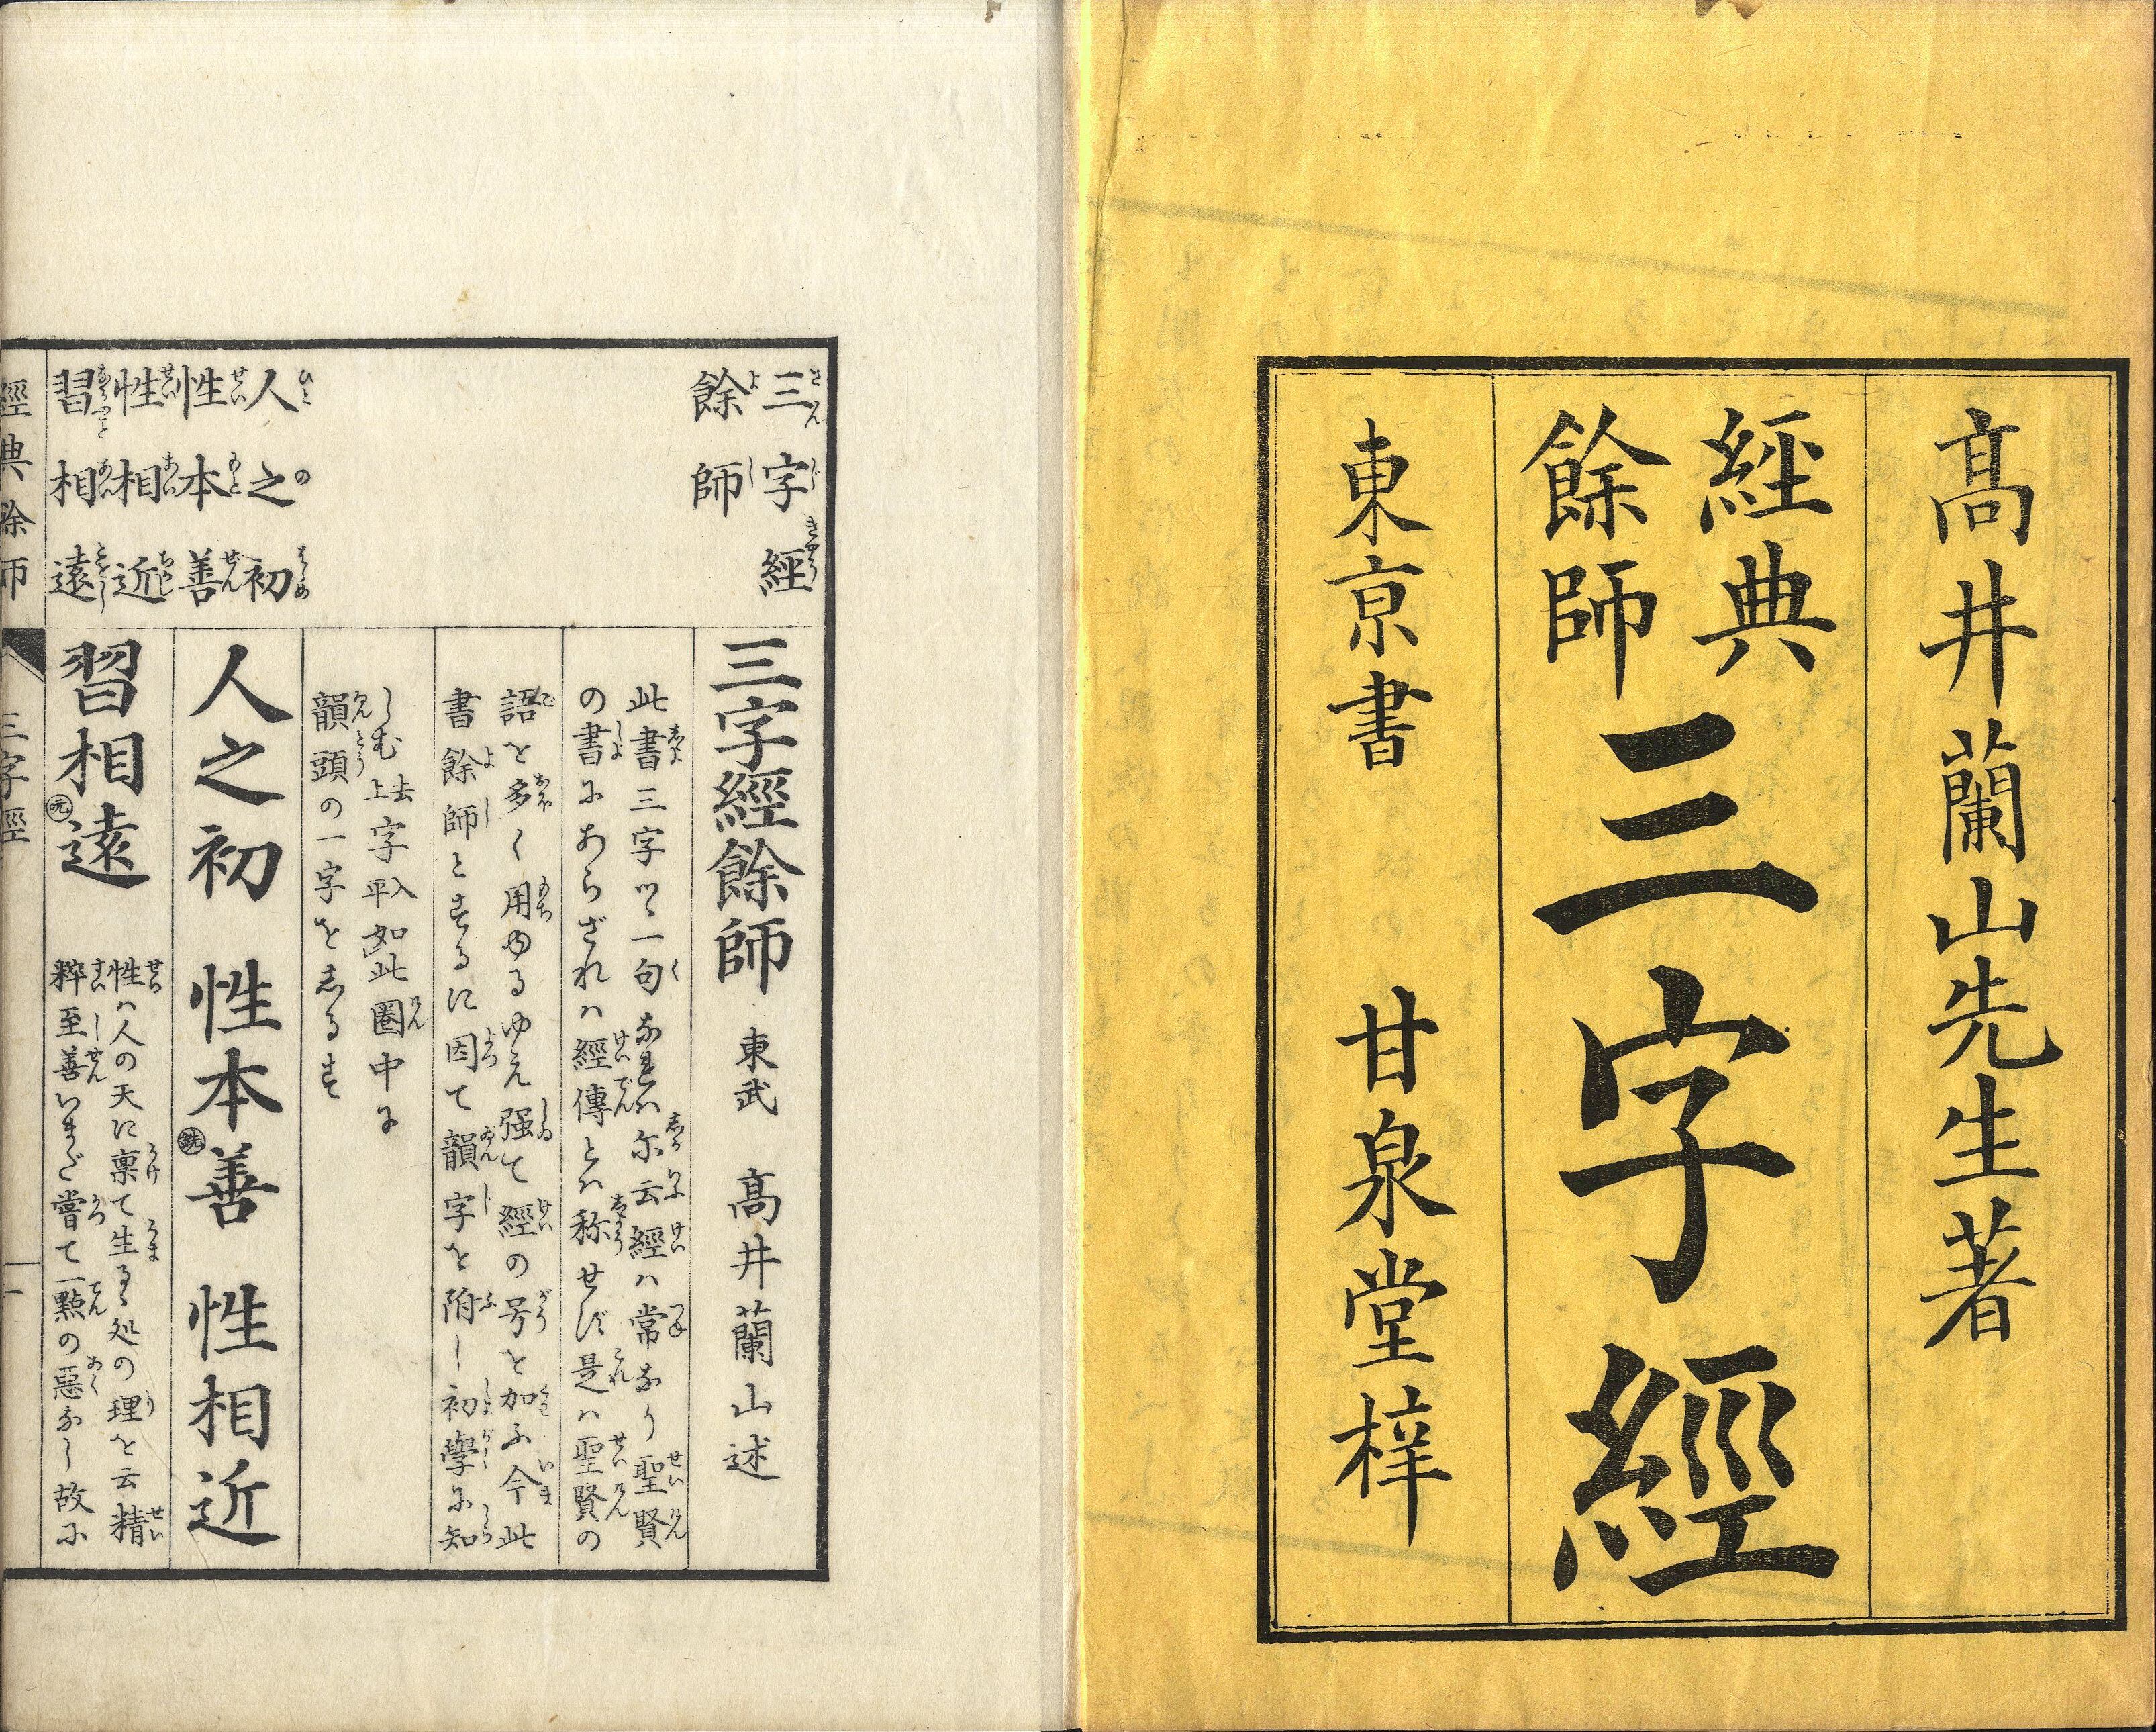 髙井蘭山先生著
經典
餘師
三字經
東京書
甘泉堂梓
三字經
餘師
人之初
性本善
性相近
習相遠
三字經餘師 東武 髙井蘭山述
此書三字ツヽ一句なれは尓云經ハ常なり聖賢
の書にあらざれハ經傳とハ称せず是ハ聖賢の
語を多く用ゆるゆえ强て經の号を加ふ今此
書餘師とするに因て韻字を附し初學に知
しむ上去字平入如此圏中に
韻頭の一字をしるす
人之初 性本善 性相近
銑
習相遠
阮
性ハ人の天に稟て生るゝ処の理を云精
粹至善いまだ嘗て一點の惡なし故に
經典餘師
三字經
一